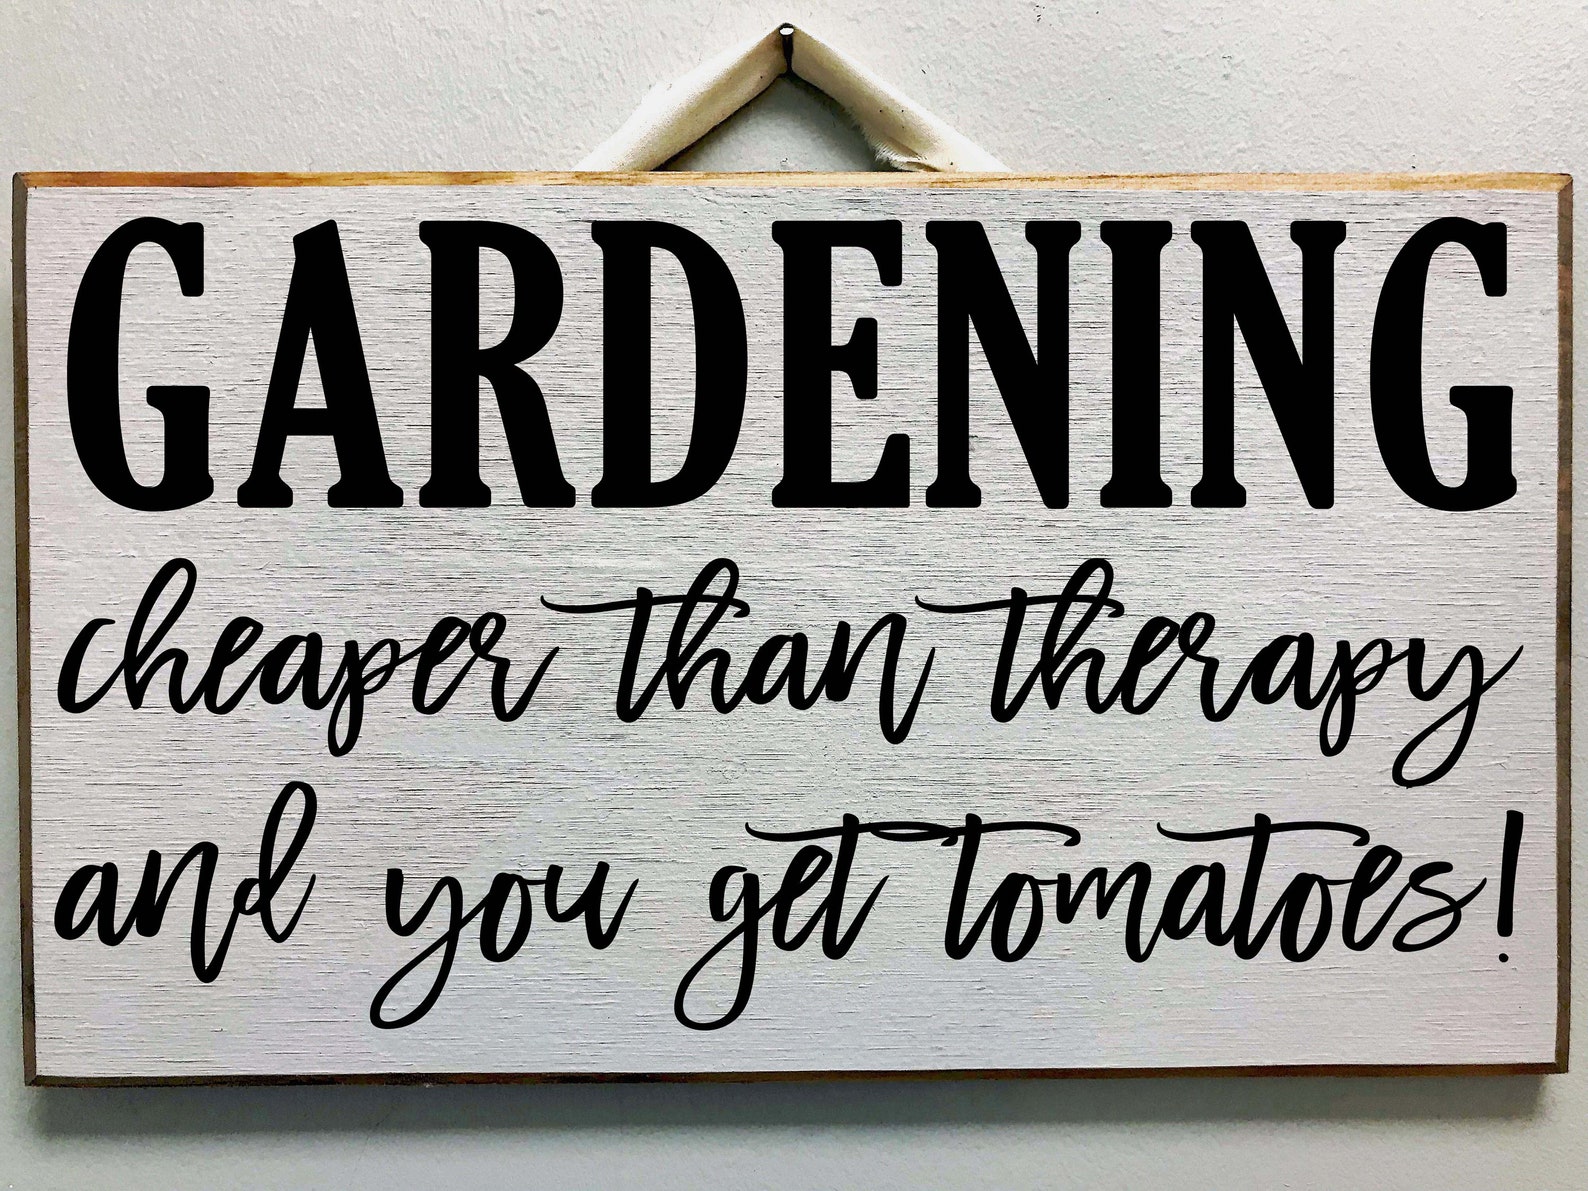 GARDENING
cheaper than therapy
and you get tomatoes!